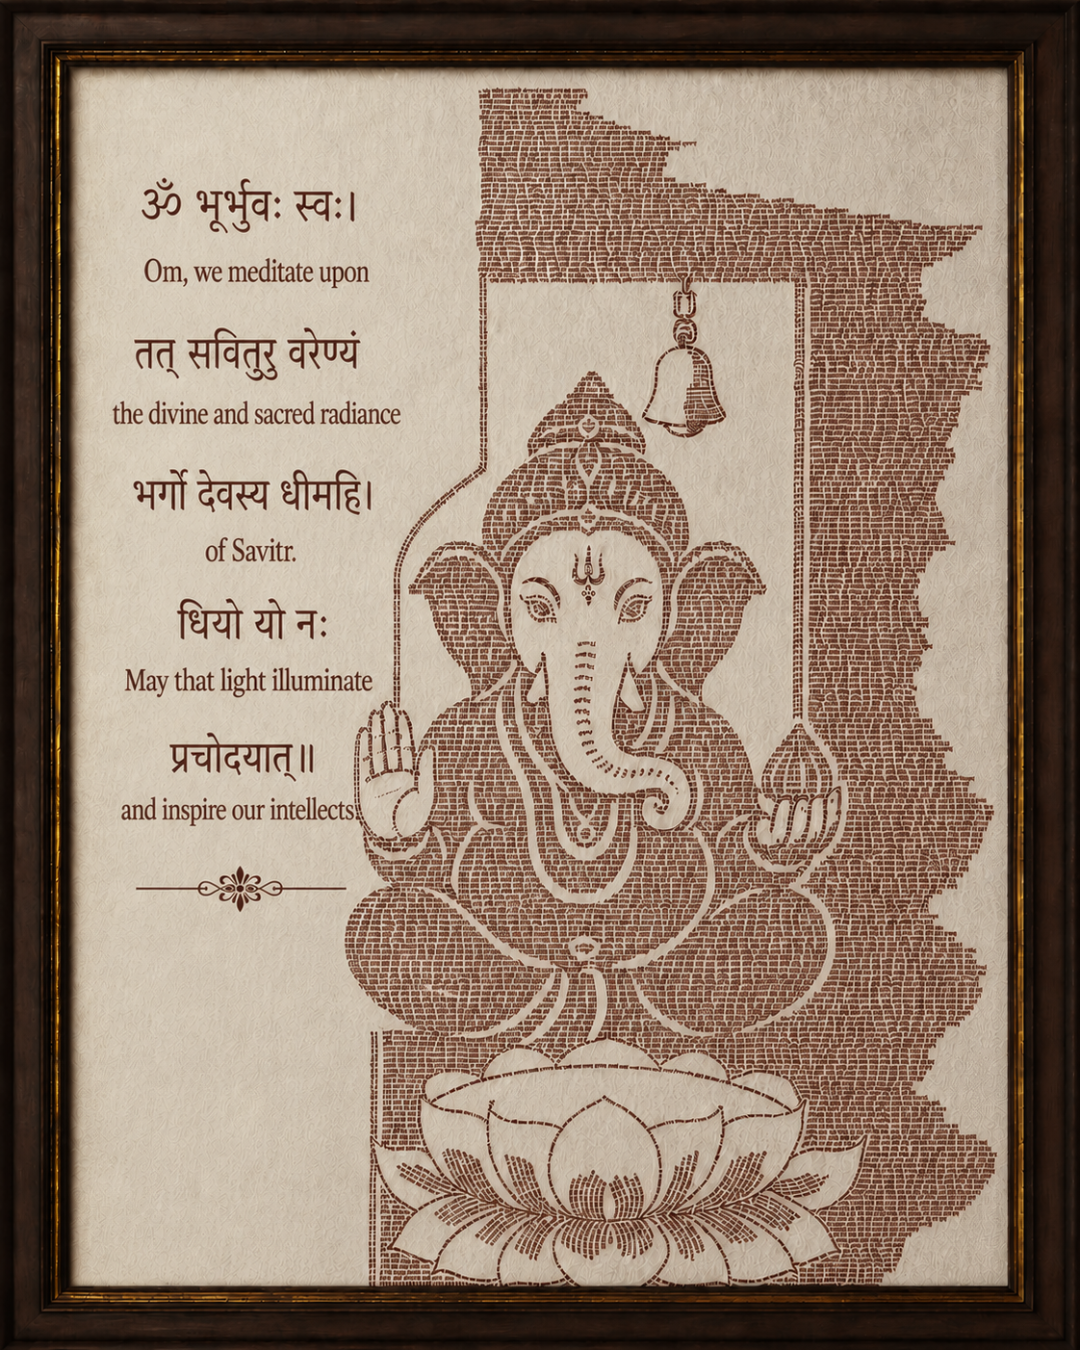 ॐ भूर्भुवः स्वः।
Om, we meditate upon
तत् सवितुरु वरेण्यं
the divine and sacred radiance
भर्गो देवस्य धीमहि।
of Savitr.
धियो यो नः
May that light illuminate
प्रचोदयात्॥
and inspire our intellects.